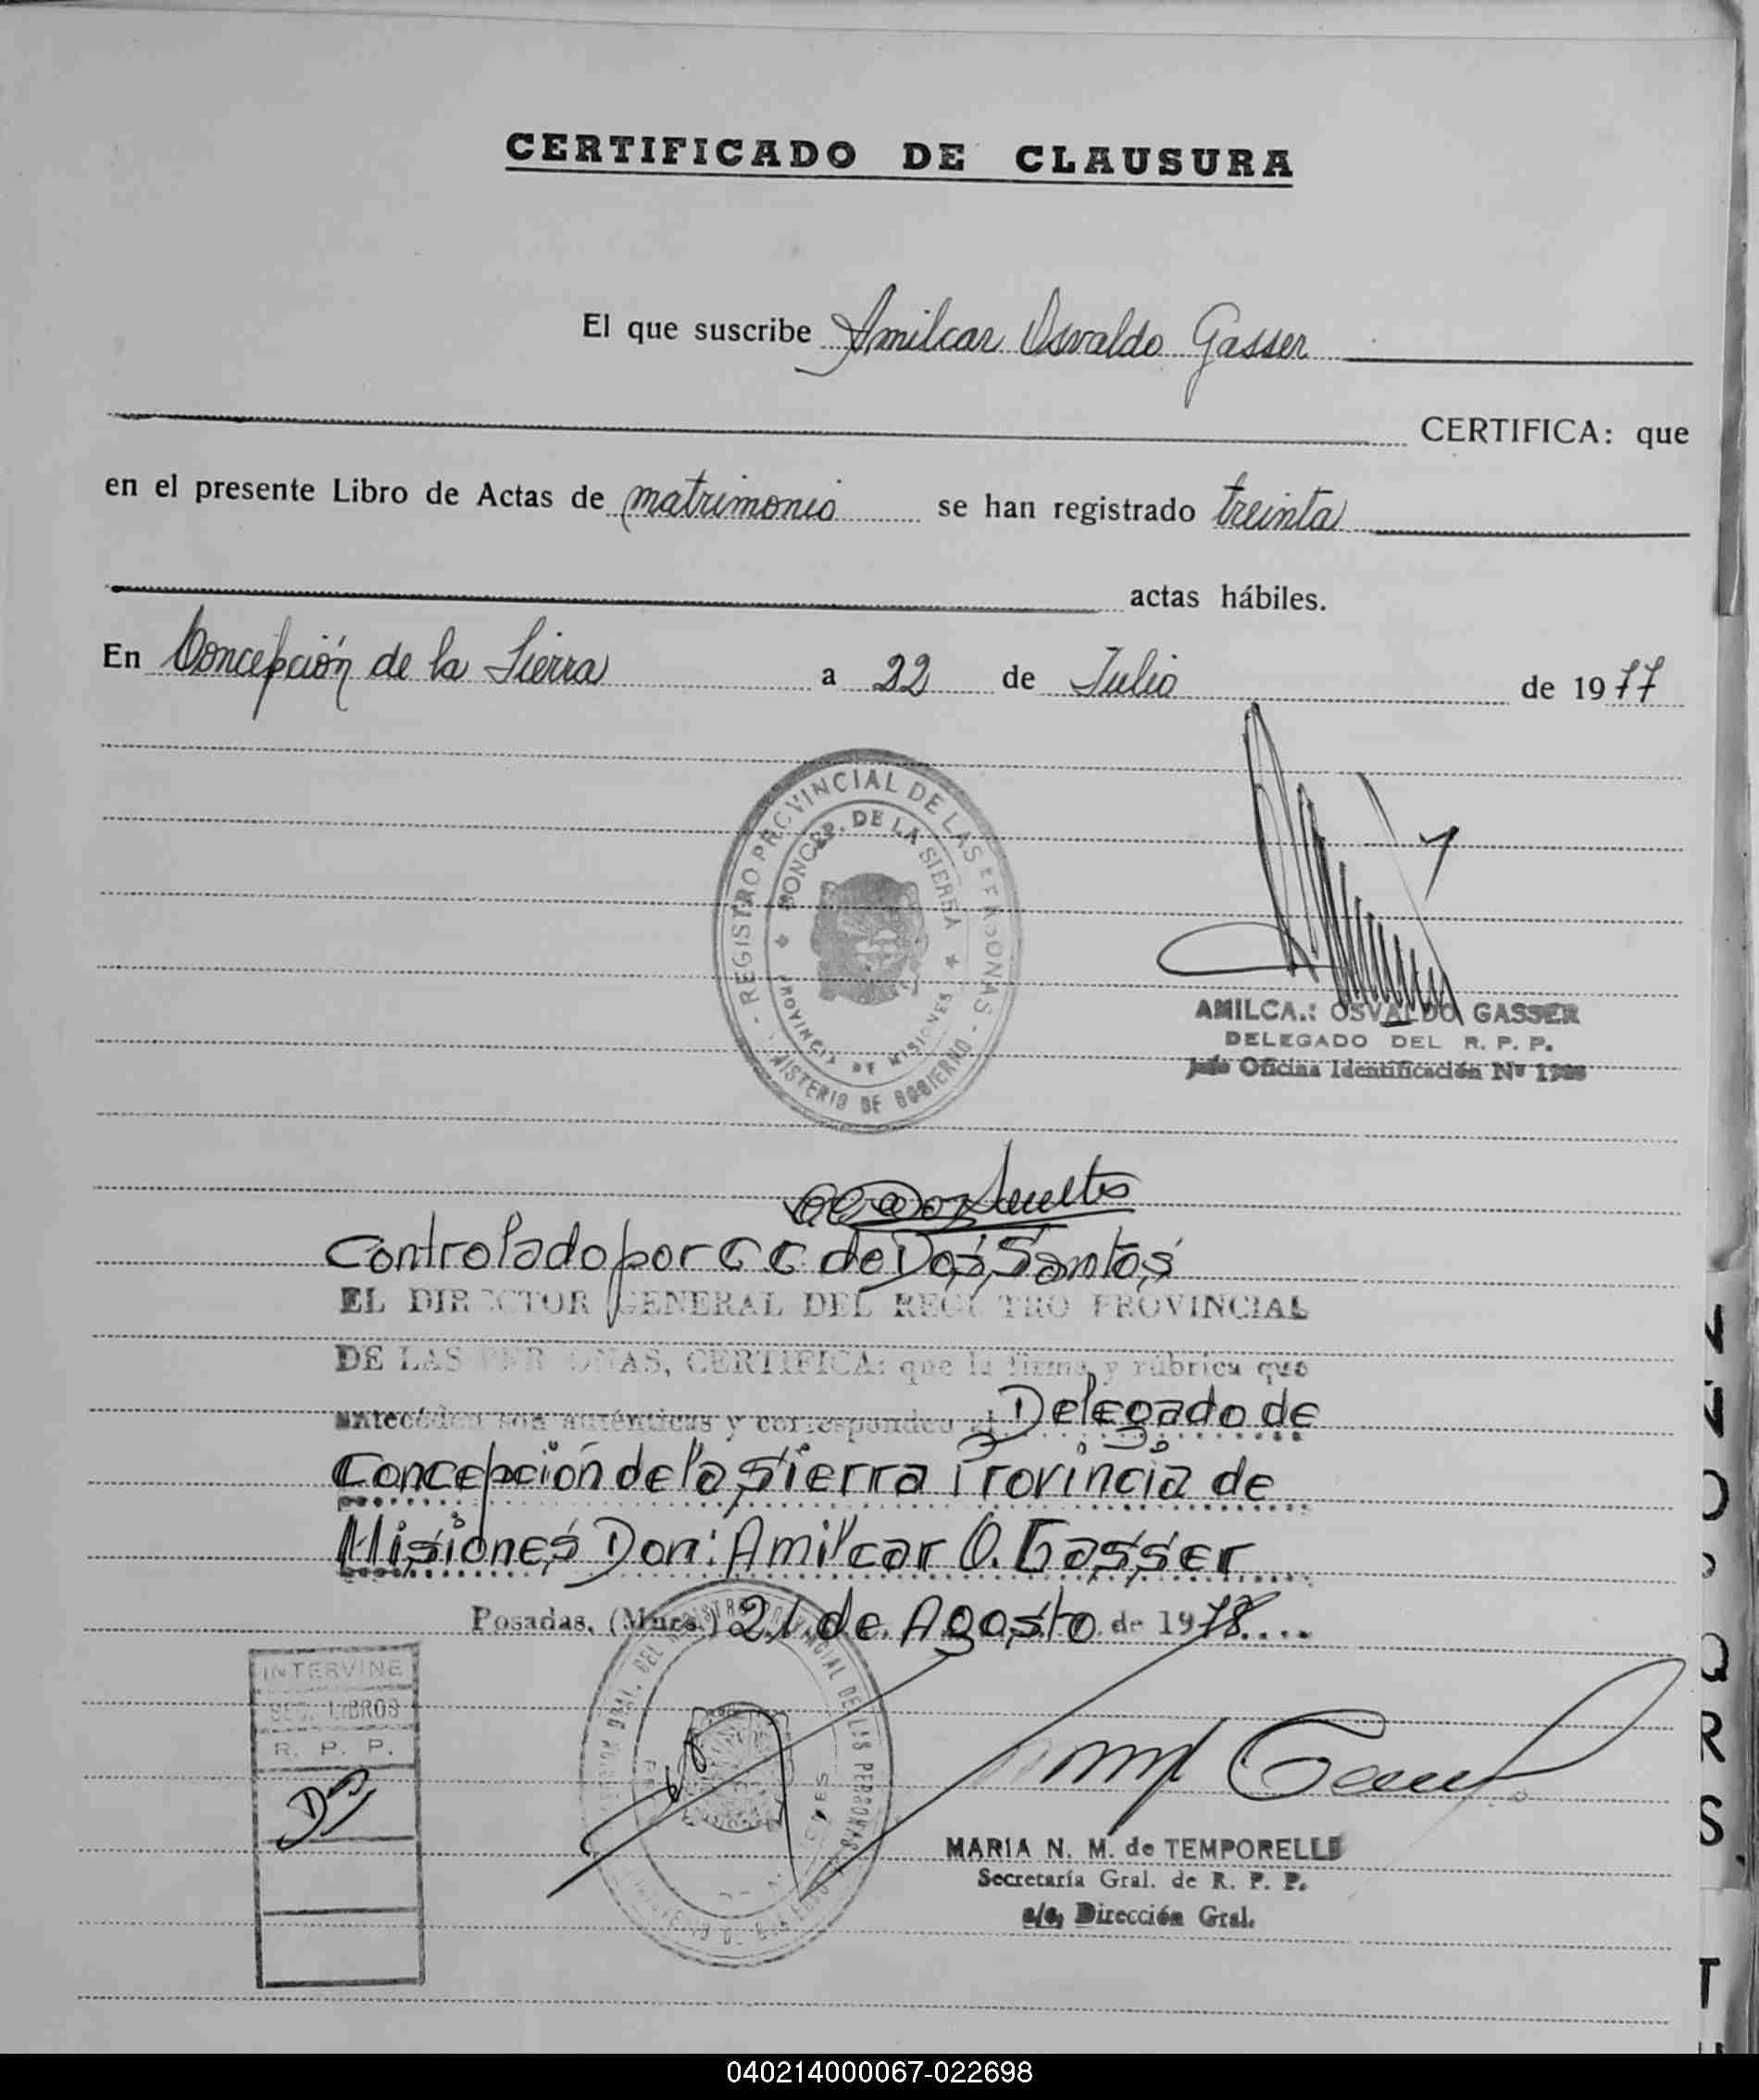 CERTIFICADO DE CLAUSURA
El que suscribe Amilcar Osvaldo Gasser
CERTIFICA: que
en el presente Libro de Actas de matrimonio se han registrado treinta
actas hábiles.
En Concepción de la Sierra a 22 de Julio de 1977
REGISTRO PROVINCIAL DE LAS PERSONAS
CONCEP. DE LA SIERRA
PROVINCIA DE MISIONES
NISTERIO DE GOBIERNO
AMILCA.: OSVALDO GASSER
DELEGADO DEL R. P. P.
Jefe Oficina Identificación Nº
Controlado por C C de Dos Santos
EL DIRECTOR GENERAL DEL REGISTRO PROVINCIAL
DE LAS PERSONAS, CERTIFICA: que la firma y rúbrica que
antecéden son auténticas y corresponden al Delegado de
Concepción de la Sierra Provincia de
Misiones Don: Amilcar O. Gasser
Posadas, (Mnes.) 21 de Agosto de 1978
INTERVINE
SEC. LIBROS
R. P. P.
MARIA N. M. de TEMPORELLI
Secretaría Gral. de R. P. P.
a/c. Dirección Gral.
N
Ñ
O
P
Q
R
S
T
040214000067-022698